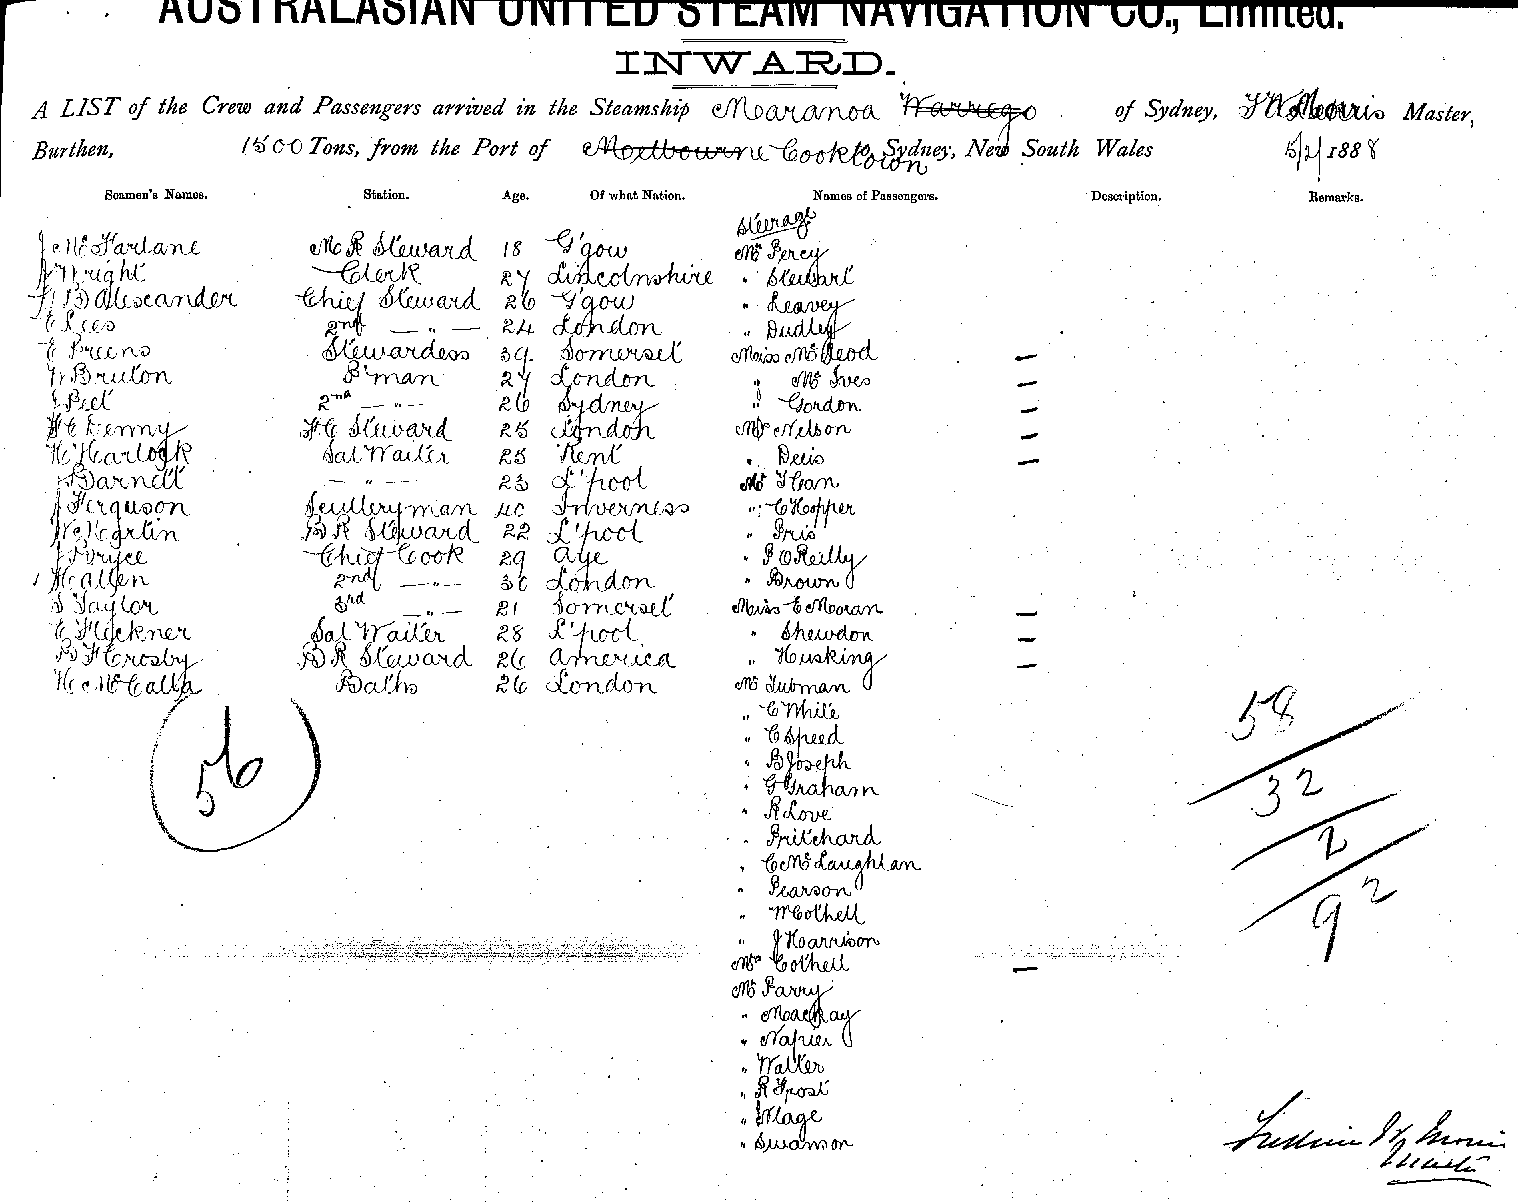 AUSTRALASIAN UNITED STEAM NAVIGATION CO., Limited.
INWARD.
A LIST of the Crew and Passengers arrived in the Steamship Maranoa Warrego of Sydney, Morris Master,
Burthen, 1500 Tons, from the Port of Melbourne Cooktown to Sydney, New South Wales 15/2/1888
Seamen's Names. Station. Age. Of what Nation. Names of Passengers. Description. Remarks.
Steerage
J McFarlane M R Steward 18 G'gow Mr Percy
J Wright Clerk 27 Lincolnshire " Stewart
Alexander Chief Steward 26 G'gow " Leavey
E Lees 2nd — " — 24 London " Dudley
E Greens Stewardess 39 Somerset Miss McLeod —
W Bruton P'man 27 London " Ives —
J Peet 2nd — " — 26 Sydney " Gordon —
H E Kenny F C Steward 25 London Nelson —
H Harlock Sal Waiter 25 Kent " —
J Barnett — " — 23 L'pool Mr
J Ferguson Sculleryman 40 Inverness " C Hopper
W Martin B R Steward 22 L'pool "
J Bryce Chief Cook 29 " P O'Reilly
H Allen 2nd — " — 30 London " Brown
S Taylor 3rd — " — 21 Somerset Miss E Moran —
E Fleckner Sal Waiter 28 L'pool " Shewdon —
B H Crosby B R Steward 26 America " Husking —
H McCalla Baths 26 London Mr Tubman
" C White
56
58
" C Speed
" B Joseph
" G Graham
32
" R Love
" Pritchard
2
" C McLaughlan
" Pearson
92
" W Cothell
" J Harrison
Mrs Cothell —
Mr Parry
" Mackay
" Napier
" Walter
" R Frost
" Mage
" Swanson
Master